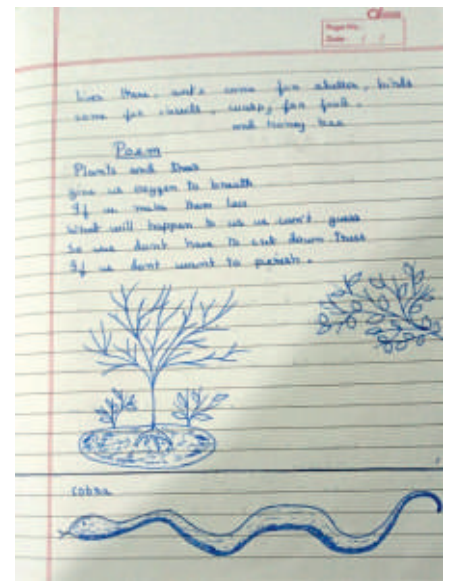 Classmate
Page No.
Date
lives there, ants come for shelter, birds
come for insects, wasp, for fruit.
and honey bee
Poem
Plants and trees
give us oxygen to breath
If we make them less
What will happen to us we can't guess
So we dont have to cut down trees
If we dont want to perish.
Cobra